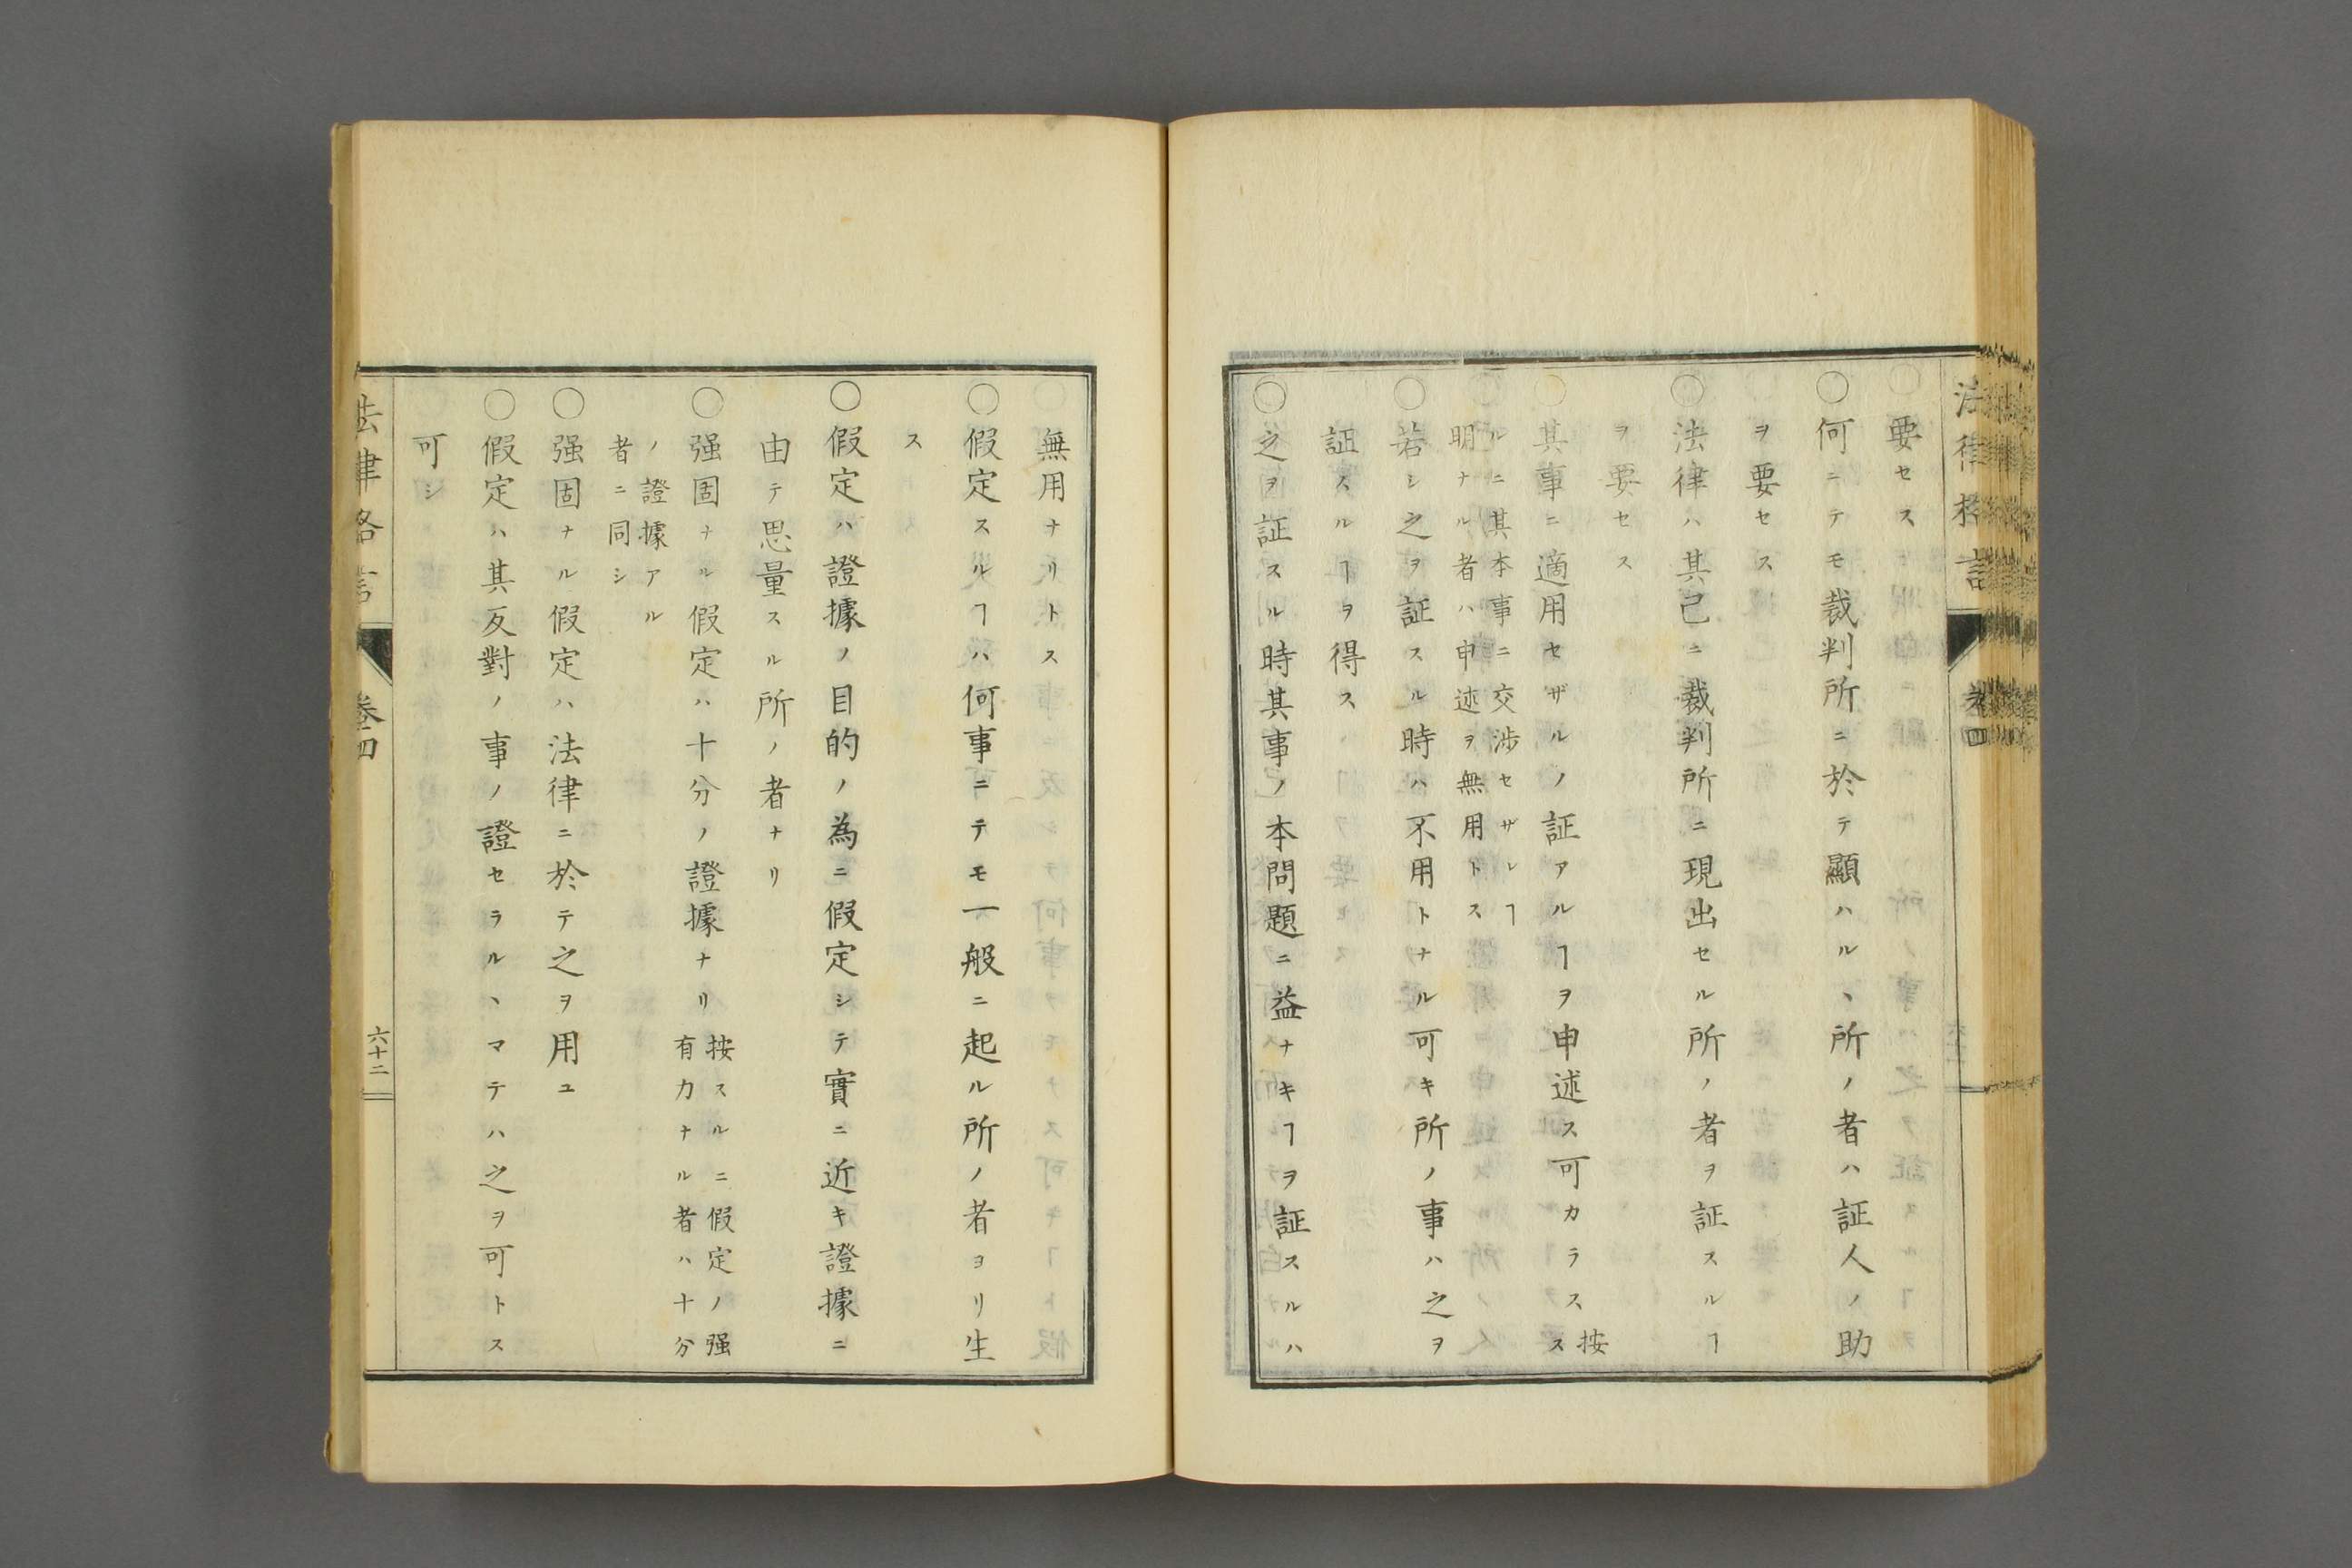 法律格言
巻四
要セス
○何ニテモ裁判所ニ於テ顯ハルヽ所ノ者ハ証人ノ助
ヲ要セス
○法律ハ其己ニ裁判所ニ現出セル所ノ者ヲ証スルヿ
ヲ要セス
○其事ニ適用セザルノ証アルヿヲ申述ス可カラス按ス
ルニ其本事ニ交渉セザレヿ
明ナル者ハ申述ヲ無用トス
○若シ之ヲ証スル時ハ不用トナル可キ所ノ事ハ之ヲ
証スルヿヲ得ス
○之ヲ証スル時其事ノ本問題ニ益ナキヿヲ証スルハ
無用ナリトス
○假定スルヿハ何事ニテモ一般ニ起ル所ノ者ヨリ生
ス
○假定ハ證據ノ目的ノ為ニ假定シテ實ニ近キ證據ニ
由テ思量スル所ノ者ナリ
○强固ナル假定ハ十分ノ證據ナリ
按スルニ假定ノ强
有力ナル者ハ十分
ノ證據アル
者ニ同シ
○强固ナル假定ハ法律ニ於テ之ヲ用ユ
○假定ハ其反對ノ事ノ證セラルヽマテハ之ヲ可トス
可シ
法律格言
巻四
六十二